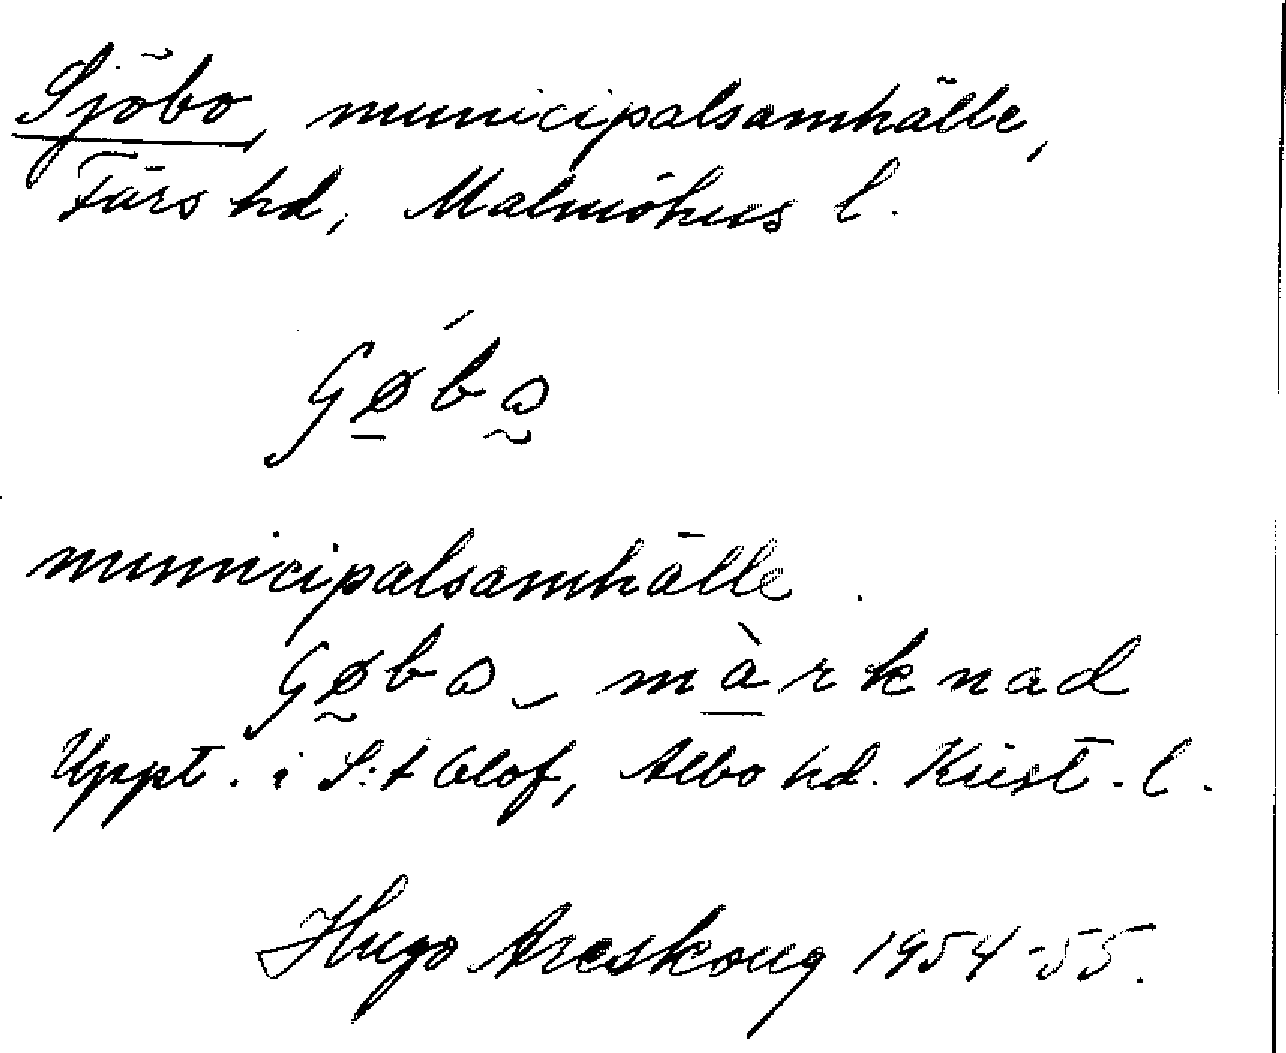 Sjöbo, municipalsamhälle,
Färs hd, Malmöhus l.
Gǿbo
municipalsamhälle.
Gøbo-màrknad
Uppt. i S:t Olof, Albo hd. Krist. l.
Hugo Areskoug 1954-55.